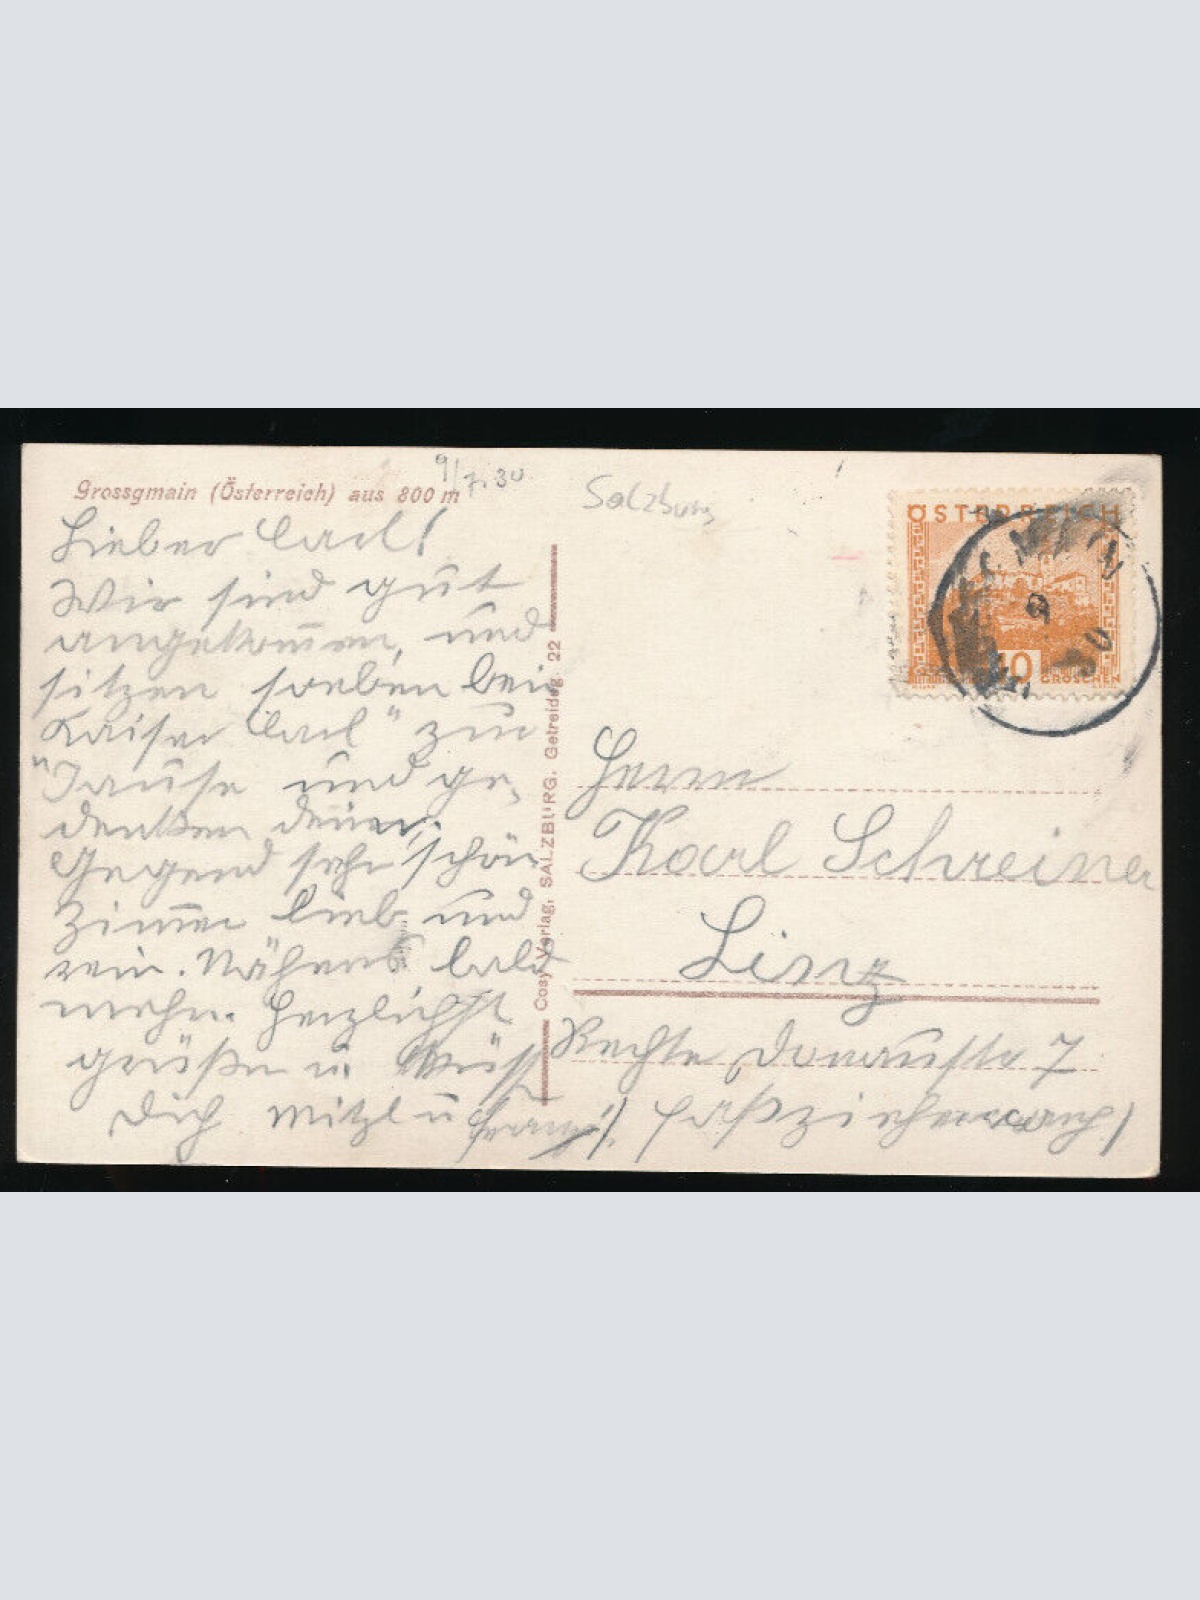 Grossgmain (Österreich) aus 800 m
9/7.30
Lieber Carl!
Wir sind gut
angekommen, und
sitzen soeben bei
"Kaiser Carl" zur
Jause und ge-
denken deiner.
Gegend sehr schön
Zimmer lieb und
rein. Näheres bald
mehr. Herzlichst
grüßen u. Küsst
Dich Mitzl u
Cosy Verlag, SALZBURG, Getreideg. 22
Salzburg
ÖSTERREICH
40
GROSCHEN
Herrn
Karl Schreiner
Linz
Rechte Donaustr 7